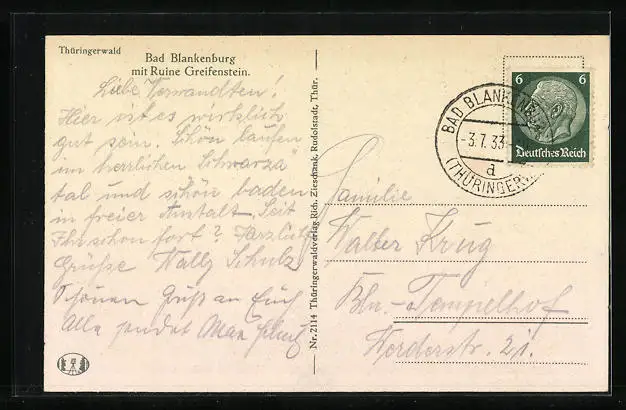 Thüringerwald
Bad Blankenburg
mit Ruine Greifenstein.
Liebe Verwandten!
Hier ist es wirklich
gut sein. Schön laufen
im herrlichen Schwarza
tal und schön baden
in freier Anstalt. Seit
Ihr schon fort? Herzliche
Grüße Wally Schulz
Schönen Gruß an Euch
Alle sendet Max Schulz
Nr. 2114 Thüringerwaldverlag Rich. Zieschank, Rudolstadt, Thür.
6 6
Deutsches Reich
BAD BLANKENBURG
-3.7.33
d
(THÜRINGERW
Familie
Walter Krug
Bln.-Tempelhof
Norderstr. 21.